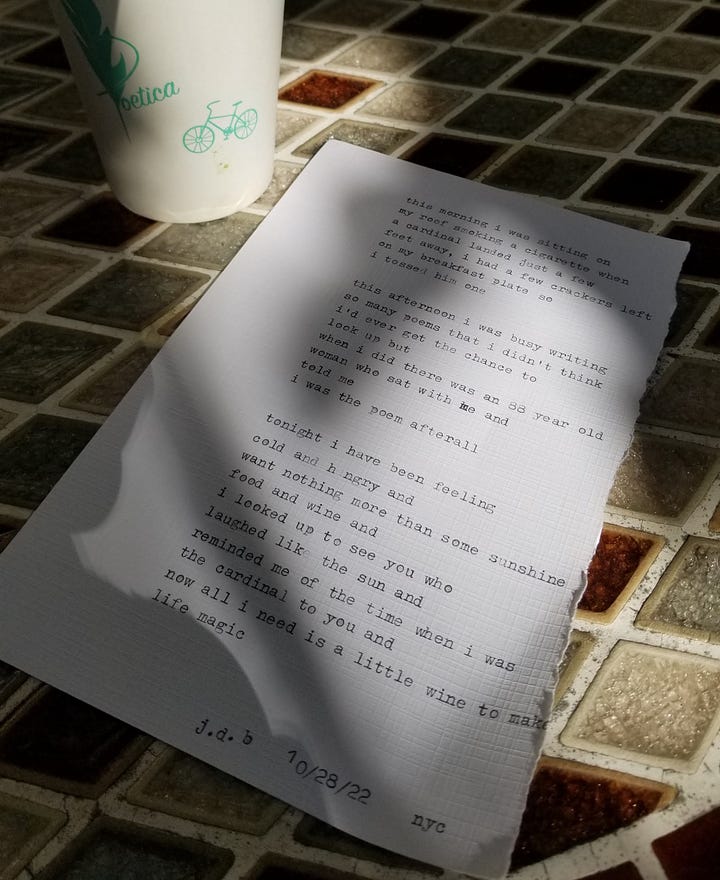 Poetica
this morning i was sitting on
my roof smoking a cigarette when
a cardinal landed just a few
feet away, i had a few crackers left
on my breakfast plate so
i tossed him one
this afternoon i was busy writing
so many poems that i didn't think
i'd ever get the chance to
look up but
when i did there was an 88 year old
woman who sat with me and
told me
i was the poem afterall
tonight i have been feeling
cold and h ngry and
want nothing more than some sunshine
food and wine and
i looked up to see you who
laughed like the sun and
reminded me of the time when i was
the cardinal to you and
now all i need is a little wine to make
life magic
j.d.b 10/28/22 nyc